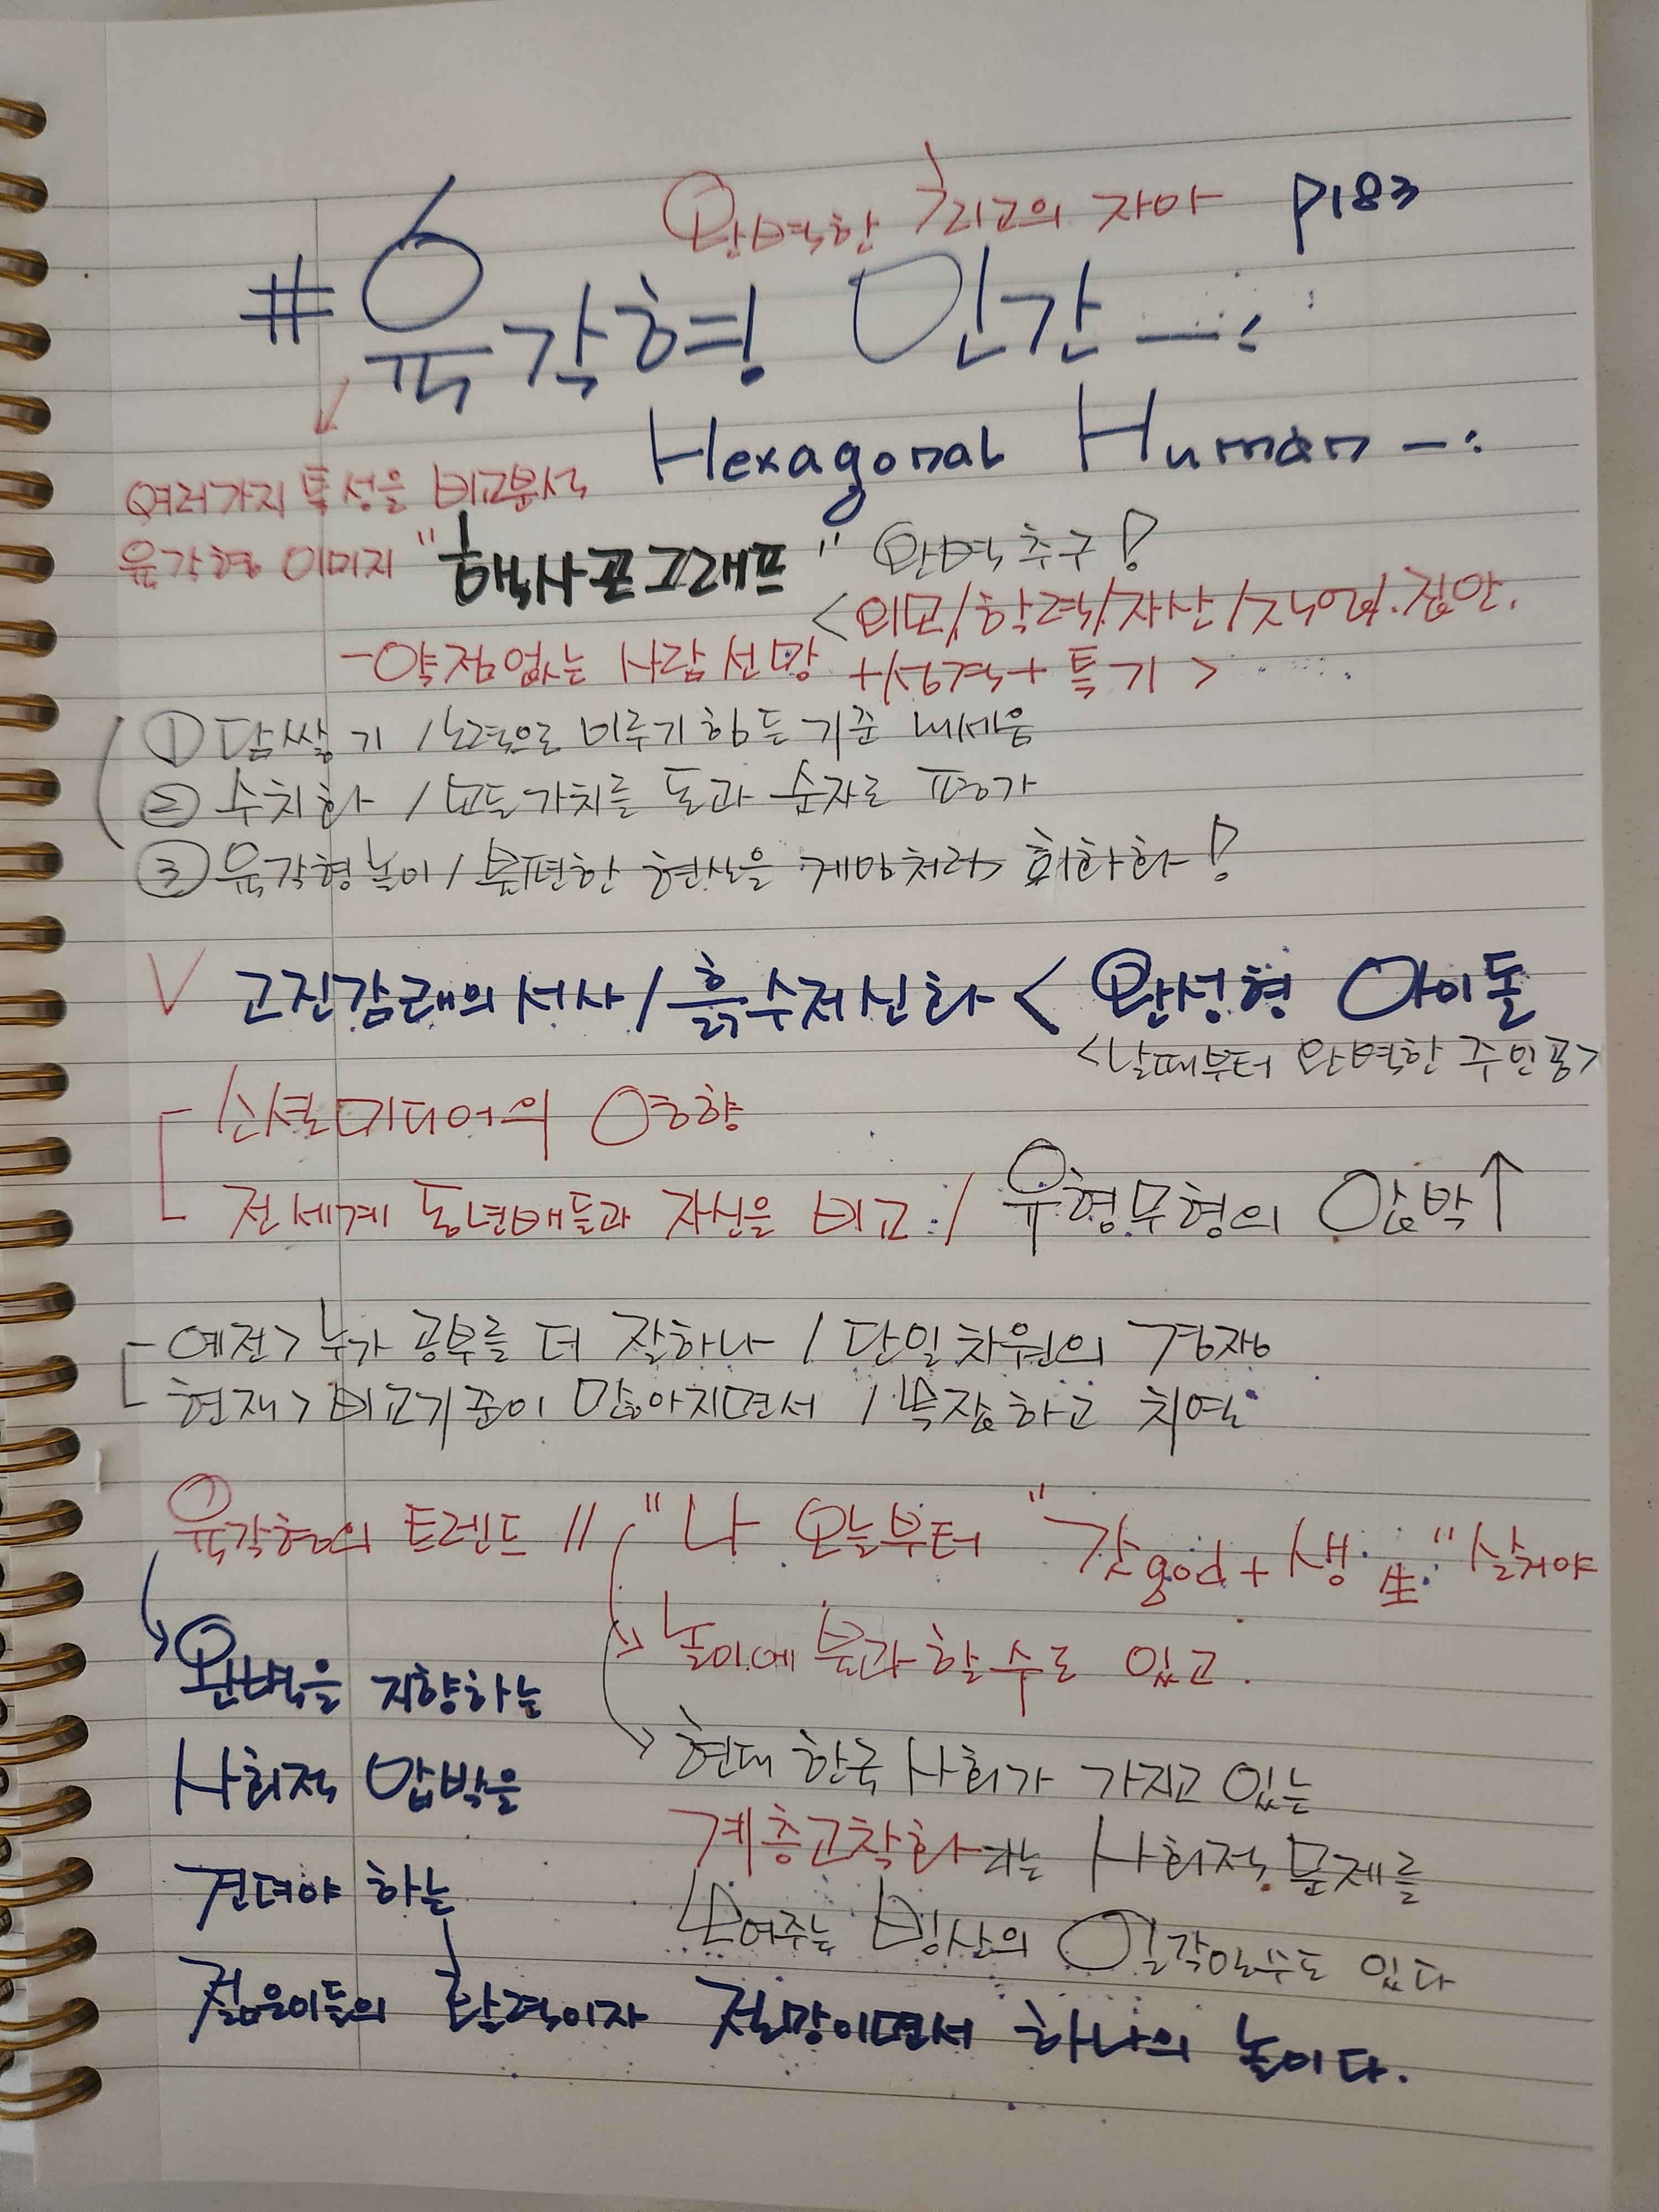 완벽한 최고의 자아 P183
#육각형 인간 —:
Hexagonal Human —:
여러가지 특성을 비교분석
육각형 이미지 "핵사곤그래프" 완벽추구!
<외모/학력/자산/직업.집안.
-약점없는 사람선망 +성격+특기>
① 담쌓기 / 노력으로 이루기힘든 기준 내세움
② 수치화 / 모든가치를 돈과 숫자로 평가
③ 육각형놀이 / 불편한 현상을 게임처럼 > 희화화!
V 고진감래의서사/흙수저신화 < 완성형 아이돌
<날때부터 완벽한 주인공>
소셜미디어의 영향
전세계 동년배들과 자신을 비교 / 유형무형의 압박↑
예전> 누가 공부를 더 잘하나 / 단일차원의 경쟁
현재> 비교기준이 많아지면서 / 복잡하고 치열
육각형의 트렌드 // "나 오늘부터 "갓god+생生" 살거야
→ 놀이에 불과할수도 있고.
→ 현대 한국사회가 가지고 있는
계층고착화라는 사회적 문제를
보여주는 빙산의 일각일수도 있다
완벽을 지향하는
사회적 압박을
견뎌야 하는
젊은이들의 활력이자 절망이면서 하나의 놀이다.